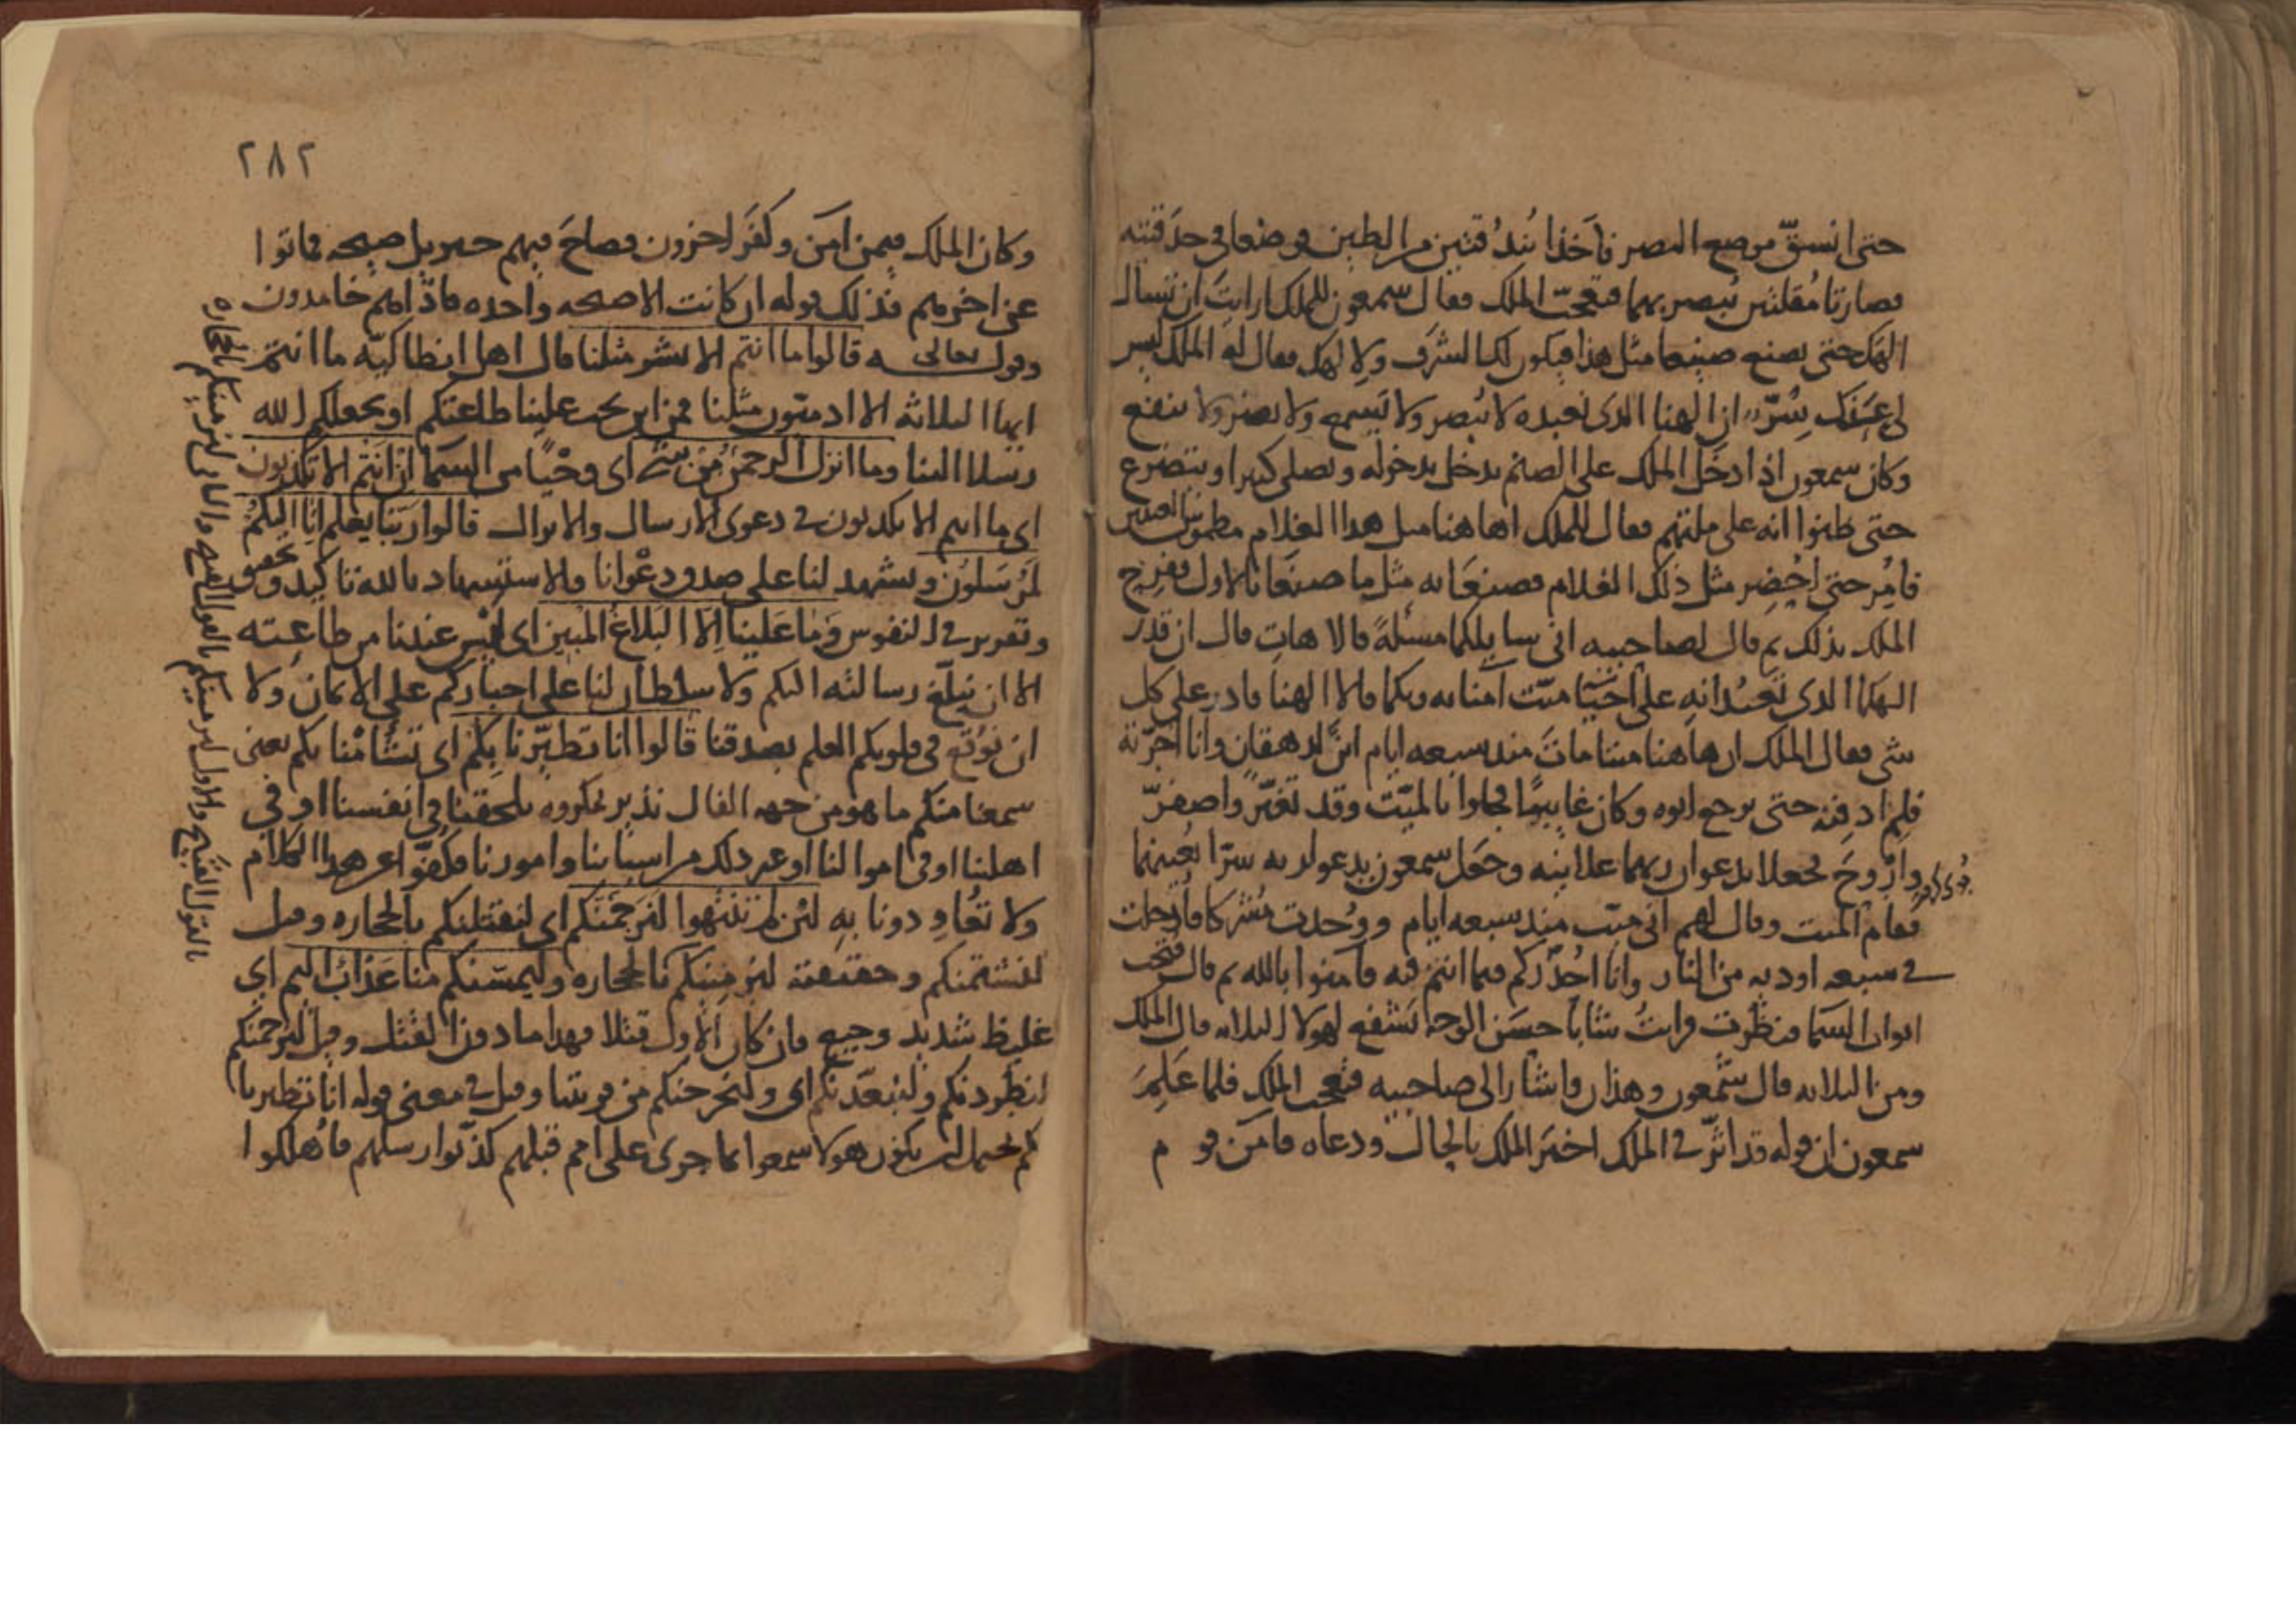 حتى انسق موضع البصر فاخذا بُندُقتين من الطين فوضعا في حدقتيه
فصارتا مُقلتين يُبصر بهما فتعجّب الملك فقال سمعون للملك ارايتَ ان تسال
الهك حتى يصنع صنيعا مثل هذا فيكون لك الشرف ولالهك فقال له الملك ليس
لي عنك سرّ ان الهنا الذي نعبده لا يُبصر ولا يَسمع ولا يضر ولا ينفع
وكان سمعون اذا دخل الملك على الصنم يدخل بدخوله ويصلي كثيرا ويتضرع
حتى ظنوا انه على ملتهم فقال للملك اهاهنا مثل هذا الغلام مطموس العينين
فامُر حتى احُضِر مثل ذلك الغلام فصنعا به مثل ما صنعا بالاول ففرح
الملك بذلك ثم قال لصاحبيه اني سايلكما مسئلةً قالا هاتِ قال ان قدر
الهكما الذي تعبدانه على احيا ميّت آمنا به وبكما قالا الهنا قادر على كل
شي فقال الملك ان هاهنا ميتا ماتَ منذ سبعه ايام ابن لدهقان وانا اخرته
فلم ادفنه حتى يرجع ابوه وكان غايبًا فجاوا بالميّت وقد تغيّر واصفرّ
واَرْوحَ فجعلا يدعوان ربهما علانيه وجعل سمعون يدعو لربه سرّا يُعينهما
فقام الميت وقال لهم اني متّ منذ سبعه ايام ووُجدت مُشركا فاُدخلت
في سبعه اوديه من النار وانا احُذّركم مما انتم فيه فآمنوا بالله ثم قال فُتحت
ابواب السما فنظرت فرايتُ شابا حسَن الوجه يَشفع لهولا الثلاثه قال الملك
ومن الثلاثه قال سَمعون وهذان واشار الى صاحبيه فتعجب الملك فلما عَلِمَ
سمعون ان قوله قد اثّر في الملك اخبَر الملك بالحال ودعاه فامَن قوم
٢٨٢
وكان الملك فيمن امَن وكفَر اخرون فصاحَ فيهم جبريل صيحه فماتوا
عن اخرهم فذلك قوله ان كانت الا صيحه واحده فاذا هم خامدون
وقوله تعالى قالوا ما انتم الا بشر مثلنا قال اهل انطاكيّه ما انتم
ايها الثلاثه الا ادميّون مثلنا فمن اين يجب علينا طاعتكم او يجعلكم الله
رسلا الينا وما انزل الرحمنُ مِن شي اى وحْيًا من السمآ ان انتم الا تكذبون
اى ما انتم الا تكذبون في دعوى الارسال والانزال قالوا ربّنا يعلم انّا اليكمُ
لمُرسَلوُن ويشهد لنا على صدق دعْوانا والاستشهاد بالله تاكيد وتحقيق
وتقرير في النفوس وَما عَلَينَا اِلّا البَلاغ المُبين اى ليس عندنا من طاعته
الا ان نبلّغ رسالته اليكم ولا سلطان لنا على اجباركم على الايمان ولا
ان نُوقع في قلوبكم العلم بصدقنا قالوا انا تطيّرنا بِكُم اى تشامْنا بكم يعنى
سمعنا منكم ما هو من جهه الفال نذير بمكروه يلحقنا في انفسنا او في
اهلنا او في اموالنا او غير ذلك من اسبابنا وامورنا فكفّوا عن هذا الكلام
ولا تعُاودونا بهِ لئن لم تنتهوا لنَرجُمَنّكم اى لنقتلنكم بالحجاره وقيل
لنشتمنكم وحقيقته لنرمينكم بالحجاره وليمسّنكم منا عَذابٌ اليم اى
غليظ شديد وجيع فان كان الاول قتلا فهذا ما دون القتل وقيل لنرجمنكم
لنطردنكم ولنبعّدنكم اى ولنخرجنكم من قريتنا وقيل في معنى قوله انّا تطيرنا
بكم يحتمل ان يكون هولا سمعوا بما جرى على امم قبلهم كذّبوا رسلهم فاُهلكوا
بالقول القبيح والاول لنرمينكم بالقول القبيح والثاني لنرمينكم بالحجاره